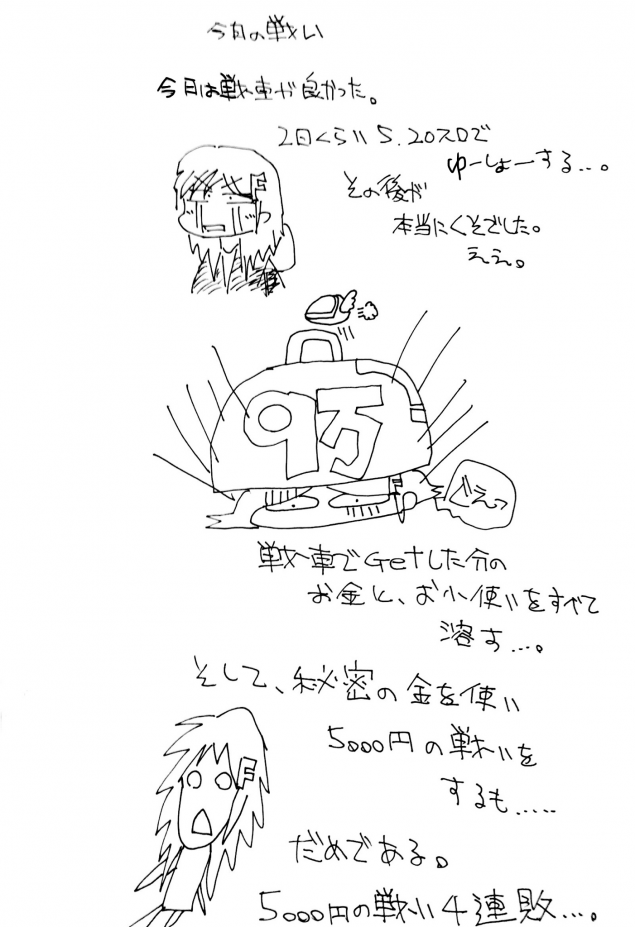 今日の戦い
今日は戦車が良かった。
2日くらい5.20スロで
ゆーしょーする...。
その後が
本当にくそでした。
ええ。
F
9万
F
ぐえっ
戦車でGetした分の
お金と、お小使いをすべて
溶す...。
そして、秘密の金を使い
5000円の戦いを
するも.....
F
だめである。
5000円の戦い4連敗...。